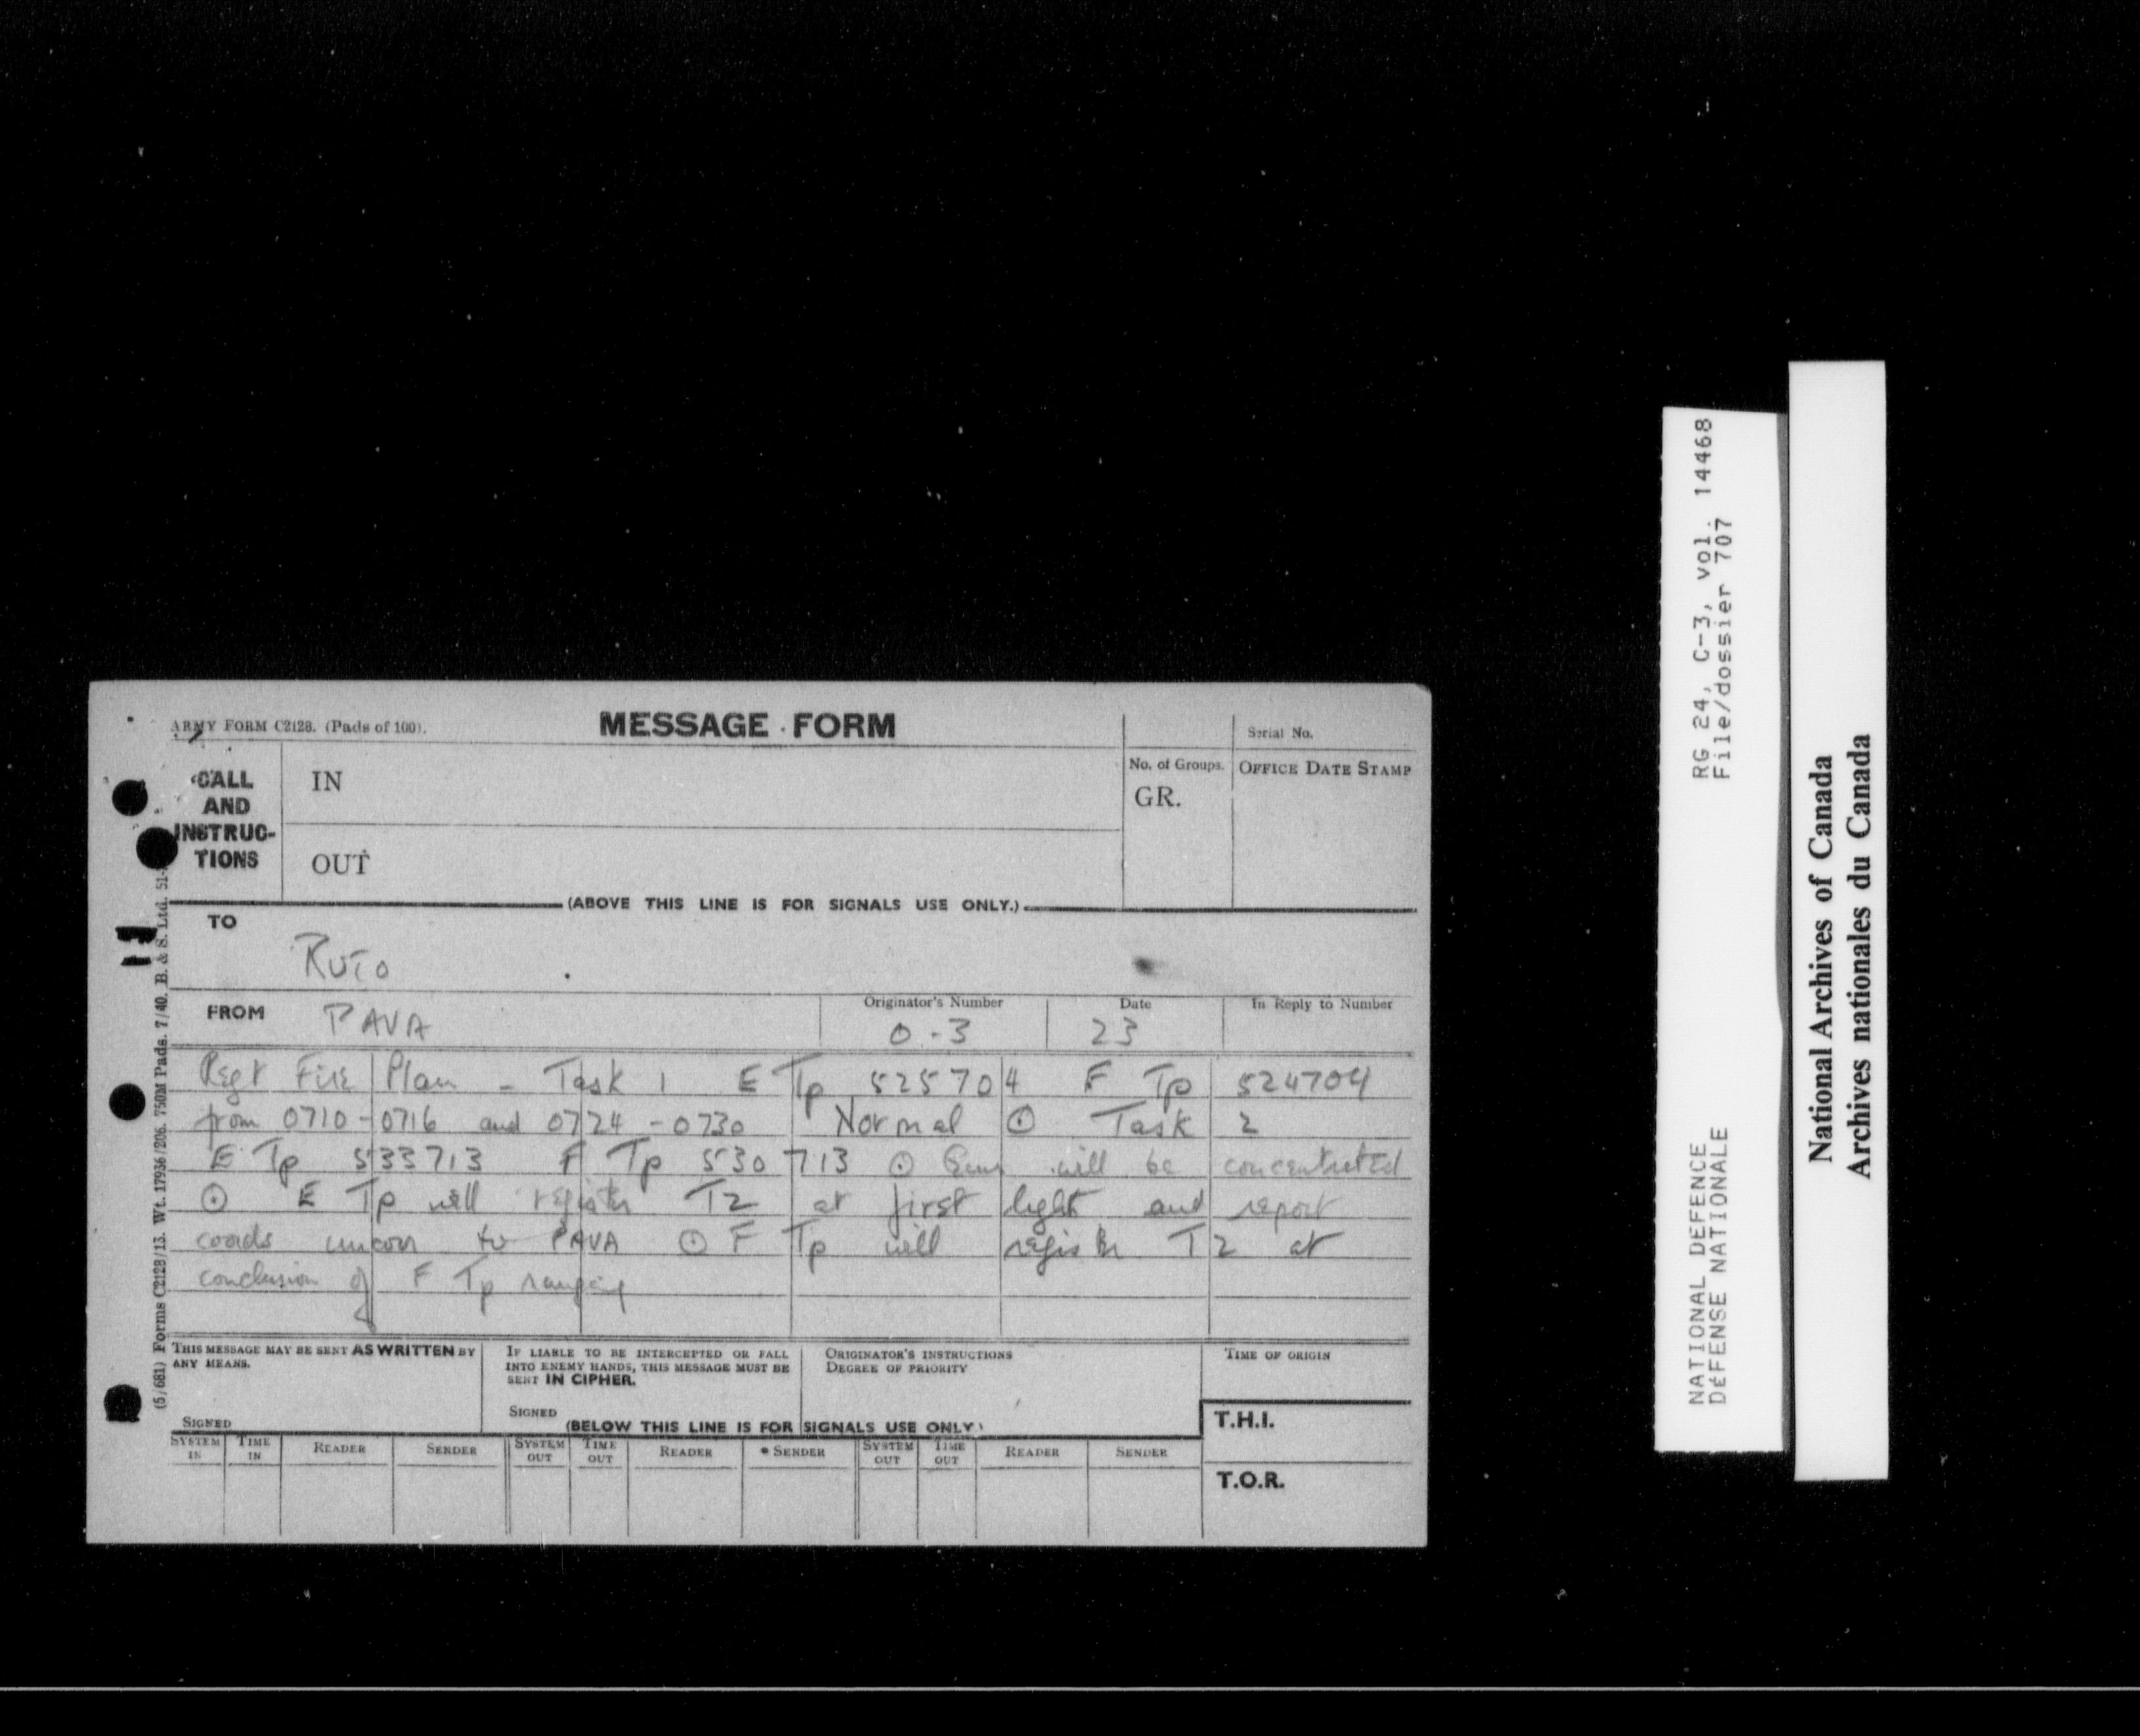 ARMY FORM C2128. (Pads of 100).
MESSAGE FORM
Serial No.
CALL
AND
INSTRUC-
TIONS
IN
OUT
No. of Groups.
GR.
OFFICE DATE STAMP
(ABOVE THIS LINE IS FOR SIGNALS USE ONLY.)
TO
RUTO
FROM PAVA
Originator's Number
0-3
Date
23
In Reply to Number
Regt Fire Plan - Task 1 E Tp 525704 F Tp 524704
from 0710-0716 and 0724-0730 Normal ⊙ Task 2
E Tp 533713 F Tp 530713 ⊙ will be concentrated
⊙ E Tp will register T2 at first light and report
coords uncorr to PAVA ⊙ F Tp will register T2 at
conclusion of F Tp ranging
THIS MESSAGE MAY BE SENT AS WRITTEN BY
ANY MEANS.
SIGNED
IF LIABLE TO BE INTERCEPTED OR FALL
INTO ENEMY HANDS, THIS MESSAGE MUST BE
SENT IN CIPHER.
SIGNED
ORIGINATOR'S INSTRUCTIONS
DEGREE OF PRIORITY
TIME OF ORIGIN
(BELOW THIS LINE IS FOR SIGNALS USE ONLY)
T.H.I.
T.O.R.
SYSTEM IN
TIME IN
READER
SENDER
SYSTEM OUT
TIME OUT
READER
SENDER
SYSTEM OUT
TIME OUT
READER
SENDER
(5/681) Forms C2128/13. Wt. 17936/206. 750M Pads. 7/40. B. & S. Ltd. 51-
NATIONAL DEFENCE RG 24, C-3, vol. 14468
DÉFENSE NATIONALE File/dossier 707
National Archives of Canada
Archives nationales du Canada